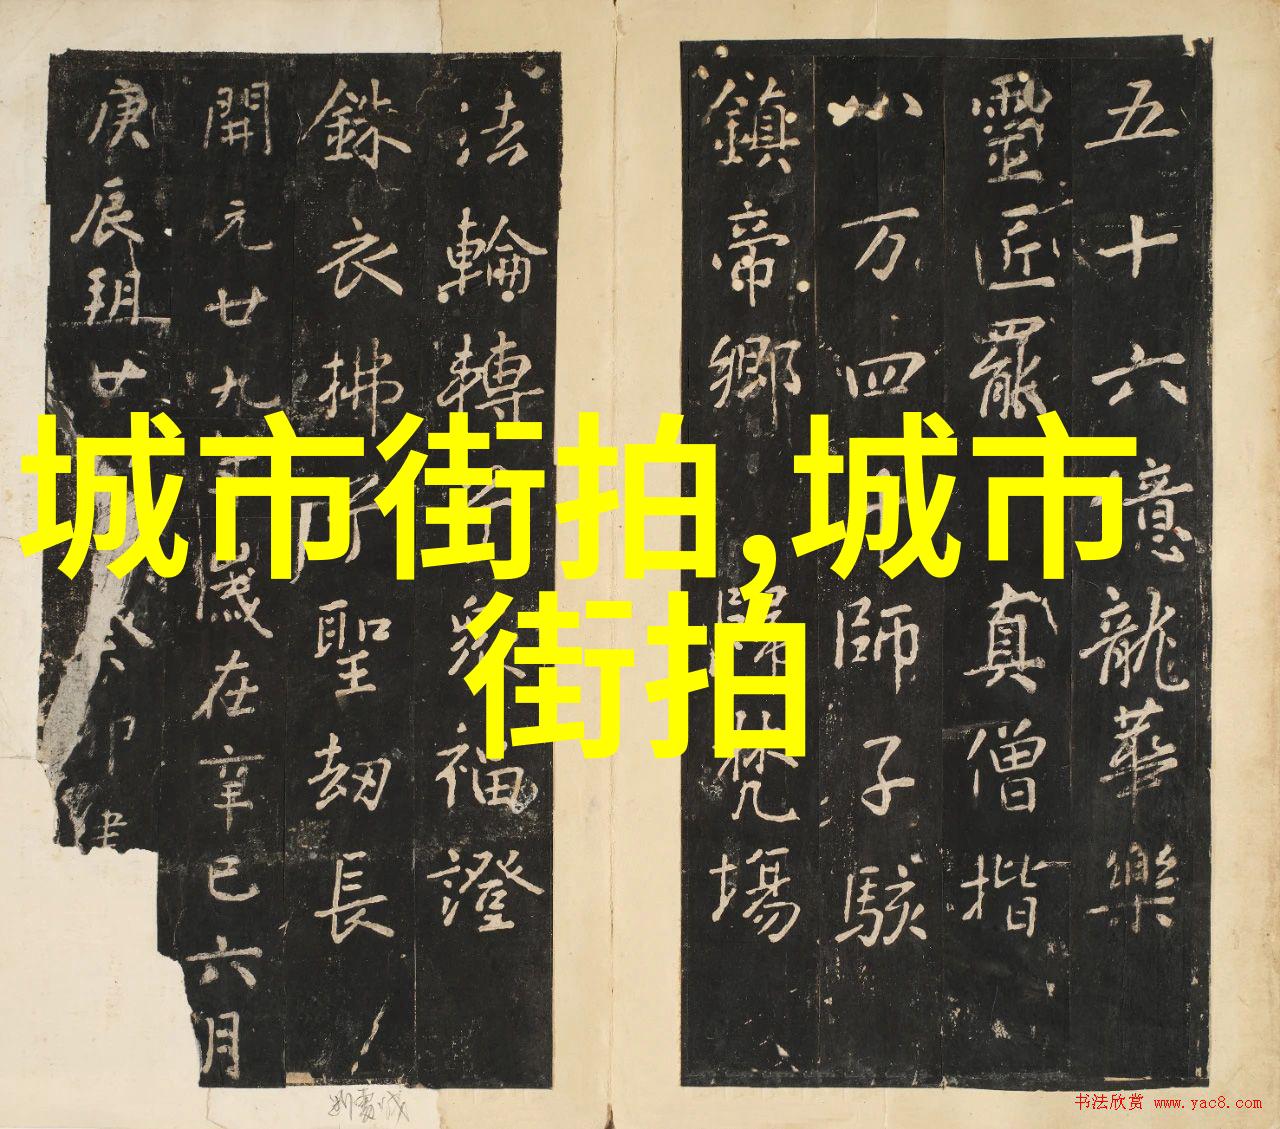 城市街拍,城市
街拍
五十六億龍華樂
靈匠罷 真僧揩
八万四 師子駭
鎮帝鄉 歸 梵場
法輪轉 眾福證
銖衣拂 聖劫長
開元廿九 歲在辛巳六月
庚辰朔廿 癸卯建
书法欣赏 www.yac8.com